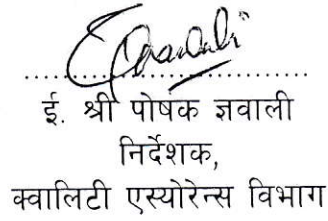 ई. श्री पोषक ज्ञवाली
निर्देशक,
क्वालिटी एस्योरेन्स विभाग